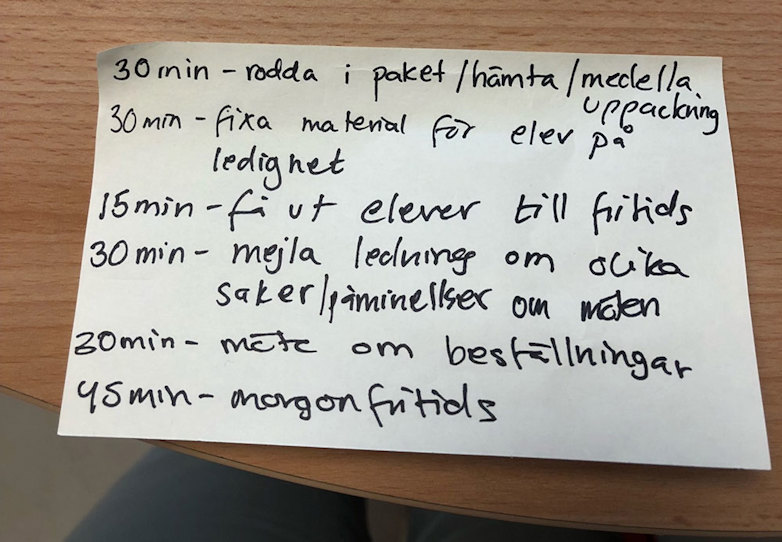 30 min - rodda i paket/hämta/medella
uppackning
30 min - fixa material för elev på
ledighet
15 min - få ut elever till fritids
30 min - mejla ledning om olika
saker/påminellser om möten
30 min - möte om beställningar
45 min - morgonfritids